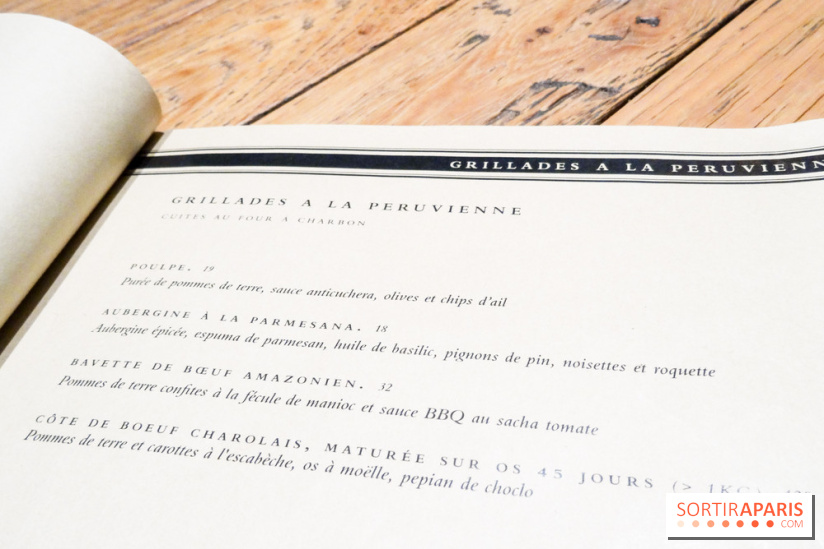 GRILLADES A LA PERUVIENN
GRILLADES A LA PERUVIENNE
CUITES AU FOUR A CHARBON
POULPE. 19
Purée de pommes de terre, sauce anticuchera, olives et chips d'ail
AUBERGINE À LA PARMESANA. 18
Aubergine épicée, espuma de parmesan, huile de basilic, pignons de pin, noisettes et roquette
BAVETTE DE BŒUF AMAZONIEN. 32
Pommes de terre confites à la fécule de manioc et sauce BBQ au sacha tomate
CÔTE DE BOEUF CHAROLAIS, MATURÉE SUR OS 45 JOURS (> 1KG)
Pommes de terre et carottes à l'escabèche, os à moëlle, pepian de choclo
SORTIRAPARIS
.COM